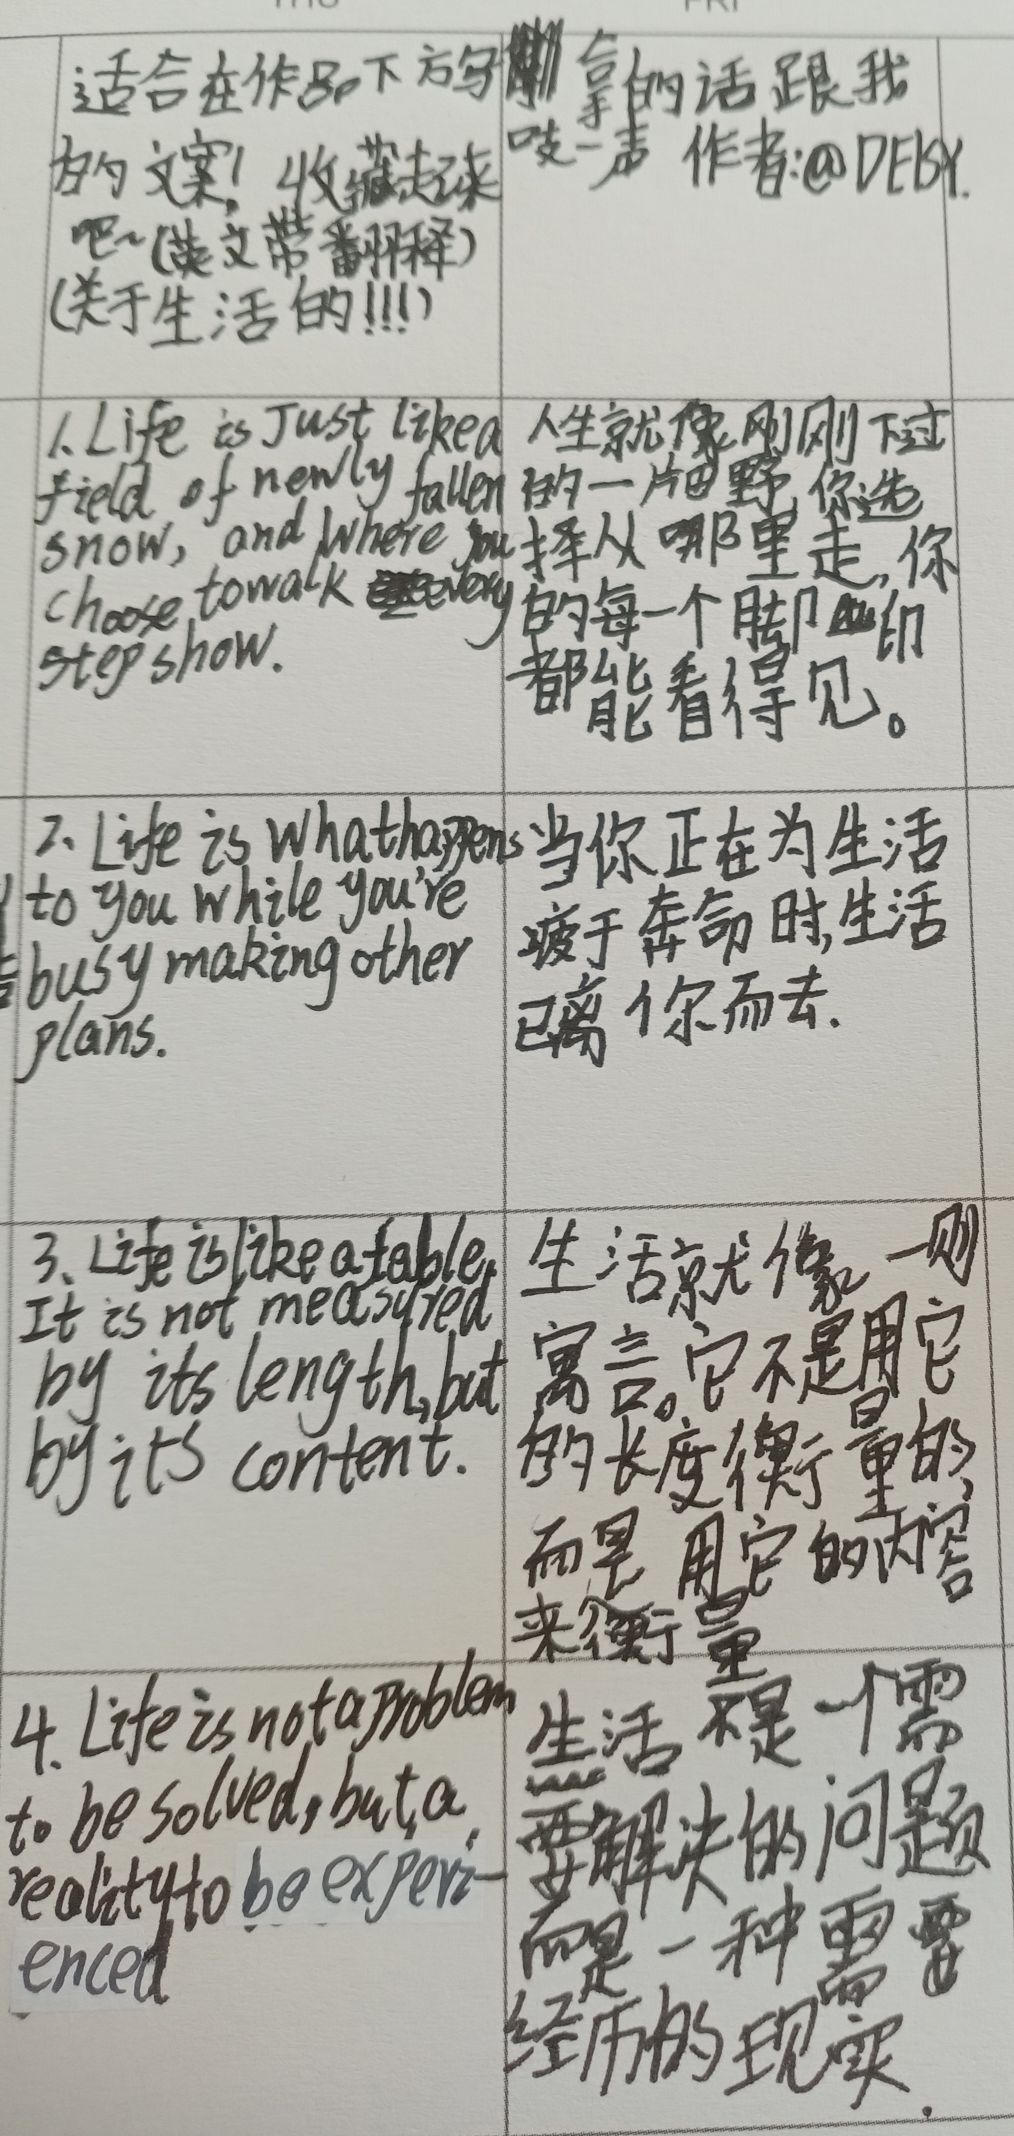 适合在作品下方写
的文案！收藏起来
吧~(英文带翻译)
(关于生活的!!!)
拿的话跟我
吱一声 作者:@DEBY.
1. Life is Just like a
field of newly fallen
snow, and where you
choose to walk every
step show.
人生就像刚刚下过
的一片田野,你选
择从哪里走,你
的每一个脚印
都能看得见。
2. Life is what happens
to you while you're
busy making other
plans.
当你正在为生活
疲于奔命时,生活
已离你而去.
3. Life is like a fable.
It is not measured
by its length, but
by its content.
生活就像一则
寓言。它不是用它
的长度衡量的,
而是用它的内容
来衡量
4. Life is not a problem
to be solved, but, a
reality to be experi-
enced
生活不是一个需
要解决的问题
而是一种需要
经历的现实.